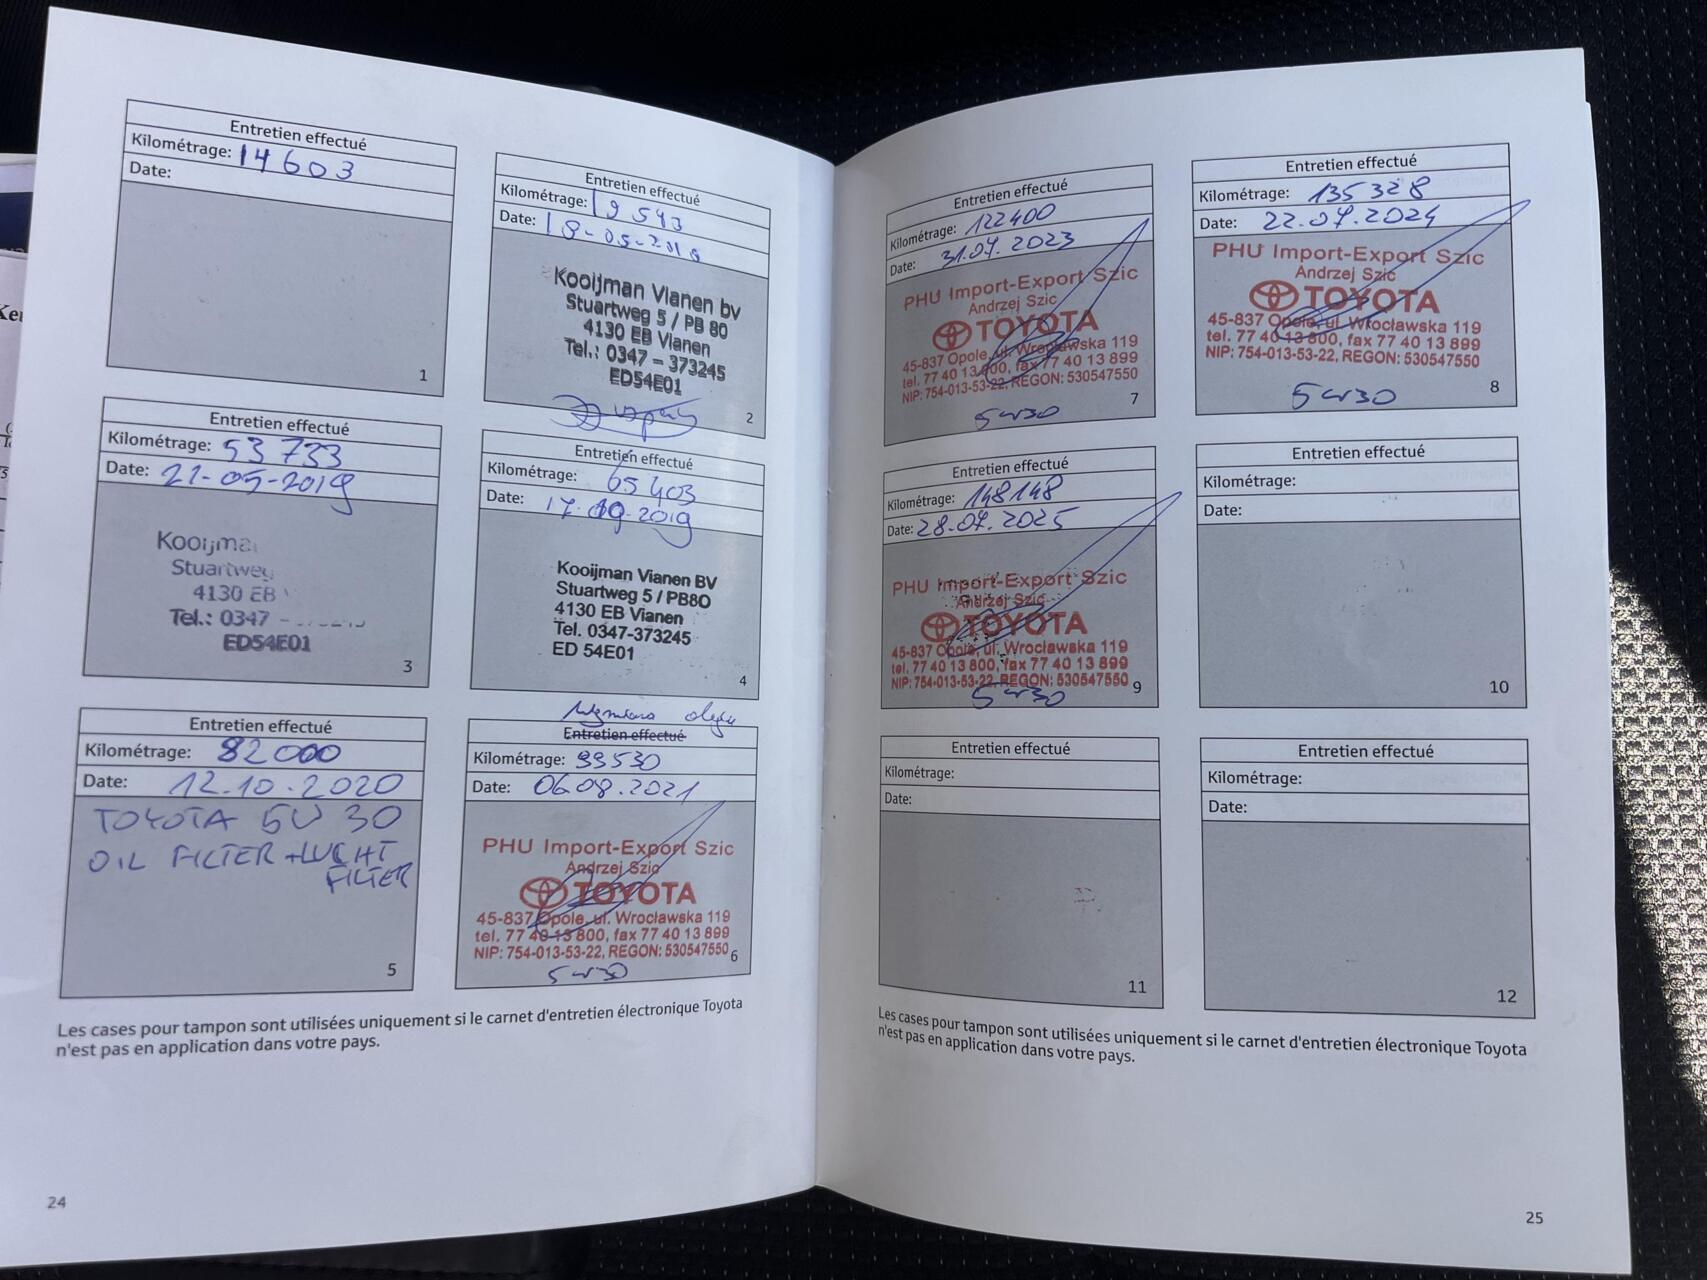 Entretien effectué
Kilométrage: 14603
Date:
1
Entretien effectué
Kilométrage: 19543
Date: 18-05-2018
Kooijman Vianen bv
Stuartweg 5 / PB 80
4130 EB Vianen
Tel.: 0347 – 373245
ED54E01
2
Entretien effectué
Kilométrage: 53 733
Date: 21-05-2019
Kooijma
Stuartweg
4130 EB
Tel.: 0347 -
ED54E01
3
Entretien effectué
Kilométrage: 65403
Date: 17-09-2019
Kooijman Vianen BV
Stuartweg 5 / PB80
4130 EB Vianen
Tel. 0347-373245
ED 54E01
4
Entretien effectué
Kilométrage: 82000
Date: 12.10.2020
TOYOTA 5W 30
OIL FILTER + LUCHT
FILTER
5
Wymiana oleju
Entretien effectué
Kilométrage: 99530
Date: 06.08.2021
PHU Import-Export Szic
Andrzej Szic
TOYOTA
45-837 Opole, ul. Wrocławska 119
tel. 77 40 13 800, fax 77 40 13 899
NIP: 754-013-53-22, REGON: 530547550
5w30
6
Les cases pour tampon sont utilisées uniquement si le carnet d'entretien électronique Toyota
n'est pas en application dans votre pays.
24
Entretien effectué
Kilométrage: 122400
Date: 31.07.2023
PHU Import-Export Szic
Andrzej Szic
TOYOTA
45-837 Opole, ul. Wrocławska 119
tel. 77 40 13 800, fax 77 40 13 899
NIP: 754-013-53-22, REGON: 530547550
5w30
7
Entretien effectué
Kilométrage: 135328
Date: 22.07.2024
PHU Import-Export Szic
Andrzej Szic
TOYOTA
45-837 Opole, ul. Wrocławska 119
tel. 77 40 13 800, fax 77 40 13 899
NIP: 754-013-53-22, REGON: 530547550
5w30
8
Entretien effectué
Kilométrage: 148148
Date: 28.07.2025
PHU Import-Export Szic
Andrzej Szic
TOYOTA
45-837 Opole, ul. Wrocławska 119
tel. 77 40 13 800, fax 77 40 13 899
NIP: 754-013-53-22, REGON: 530547550
5w30
9
Entretien effectué
Kilométrage:
Date:
10
Entretien effectué
Kilométrage:
Date:
11
Entretien effectué
Kilométrage:
Date:
12
Les cases pour tampon sont utilisées uniquement si le carnet d'entretien électronique Toyota
n'est pas en application dans votre pays.
25